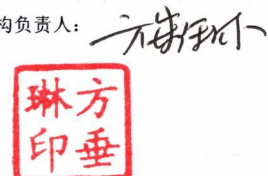 构负责人：
方垂琳印